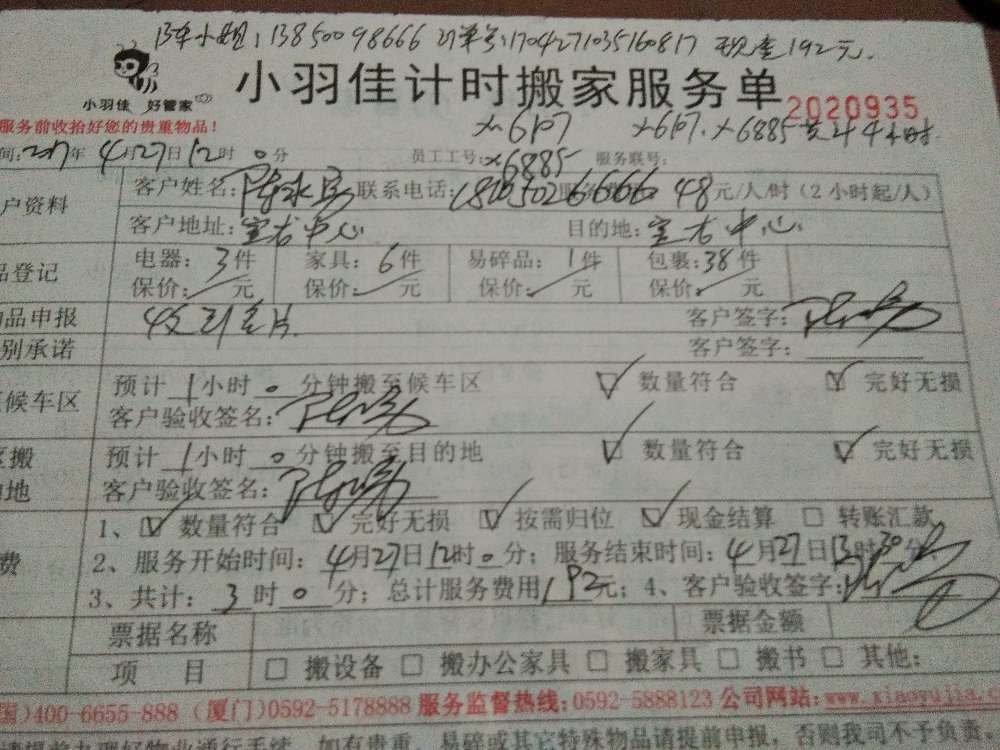 小姐:13850098666 订单号:1704271035160817 现金192元.
小羽佳 好管家
小羽佳计时搬家服务单
2020935
服务前收拾好您的贵重物品!
x6107 x6107.x6885共计4小时.
间:2017年4月27日12时0分 员工工号:x6885 服务联号:
户资料
客户姓名: 联系电话: 48元/人/时(2小时起/人)
客户地址: 中心 目的地: 中心
品登记
电器:3件 家具:6件 易碎品:1件 包裹:38件
保价: 元 保价: 元 保价: 元 保价: 元
品申报 客户签字:
别承诺 客户签字:
候车区
预计1小时0分钟搬至候车区 数量符合 完好无损
客户验收签名:
搬
地
预计1小时0分钟搬至目的地 数量符合 完好无损
客户验收签名:
费
1、数量符合 完好无损 按需归位 现金结算 转账汇款
2、服务开始时间:4月27日12时0分;服务结束时间:4月27日13时30分
3、共计:3时0分;总计服务费用192元;4、客户验收签字:
票据名称 票据金额
项 目 搬设备 搬办公家具 搬家具 搬书 其他:
国)400-6655-888 (厦门)0592-5178888 服务监督热线:0592-5888123 公司网站:www.xiaoyujia.c
请提前办理好物业通行手续,如有贵重、易碎或其它特殊物品请提前申报,否则我司不予负责。